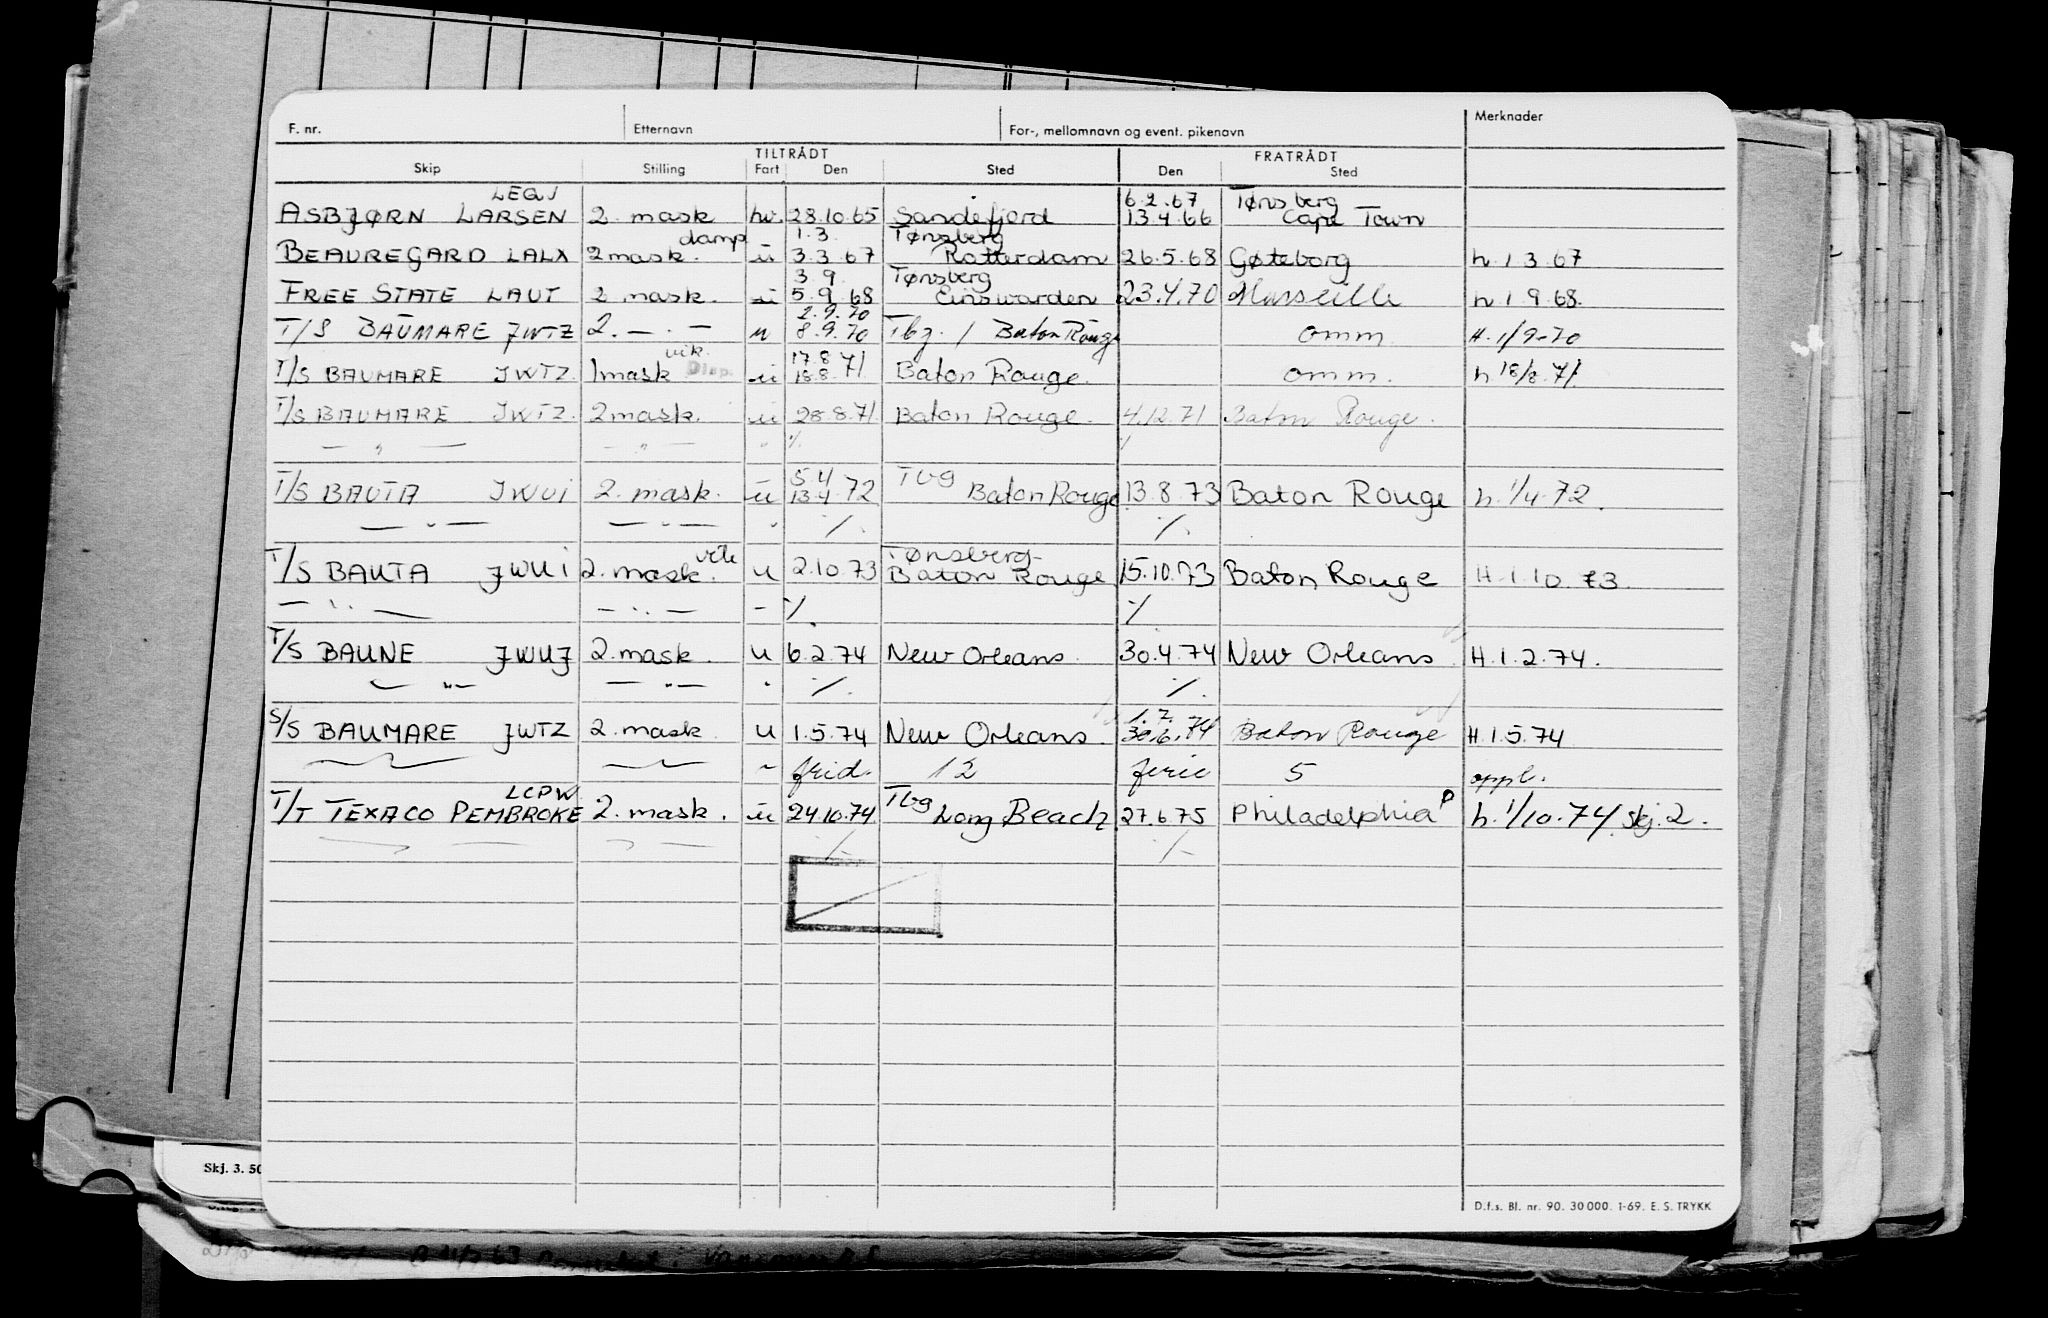 F. nr. Etternavn For-, mellomnavn og event. pikenavn Merknader
TILTRÅDT FRATRÅDT
Skip Stilling Fart Den Sted Den Sted
LEQJ 6.2.67 Tønsberg
ASBJØRN LARSEN 2. mask hv. 28.10.65 Sandefjord 13.4.66 Cape Town
damp 1.3. Tønsberg
BEAUREGARD LALX 2 mask. u 3.3.67 Rotterdam 26.5.68 Gøteborg h 1.3.67
3.9. Tønsberg
FREE STATE LAUT 2 mask. u 5.9.68 Einswarden 23.4.70 Marseille h 1.9.68.
2.9.70
T/S BAUMARE JWTZ 2. — . — u 8.9.70 Tbg. / Baton Rouge omm. H. 1/9-70
vik. 17.8
T/S BAUMARE JWTZ. 1 mask Disp. u 18.8.71 Baton Rouge. omm. h 18/8.71
T/S BAUMARE JWTZ. 2 mask. u 28.8.71 Baton Rouge. 4.12.71 Baton Rouge.
— " — — " — " ٪ ٪
5.4 Tbg
T/S BAUTA JWUI 2. mask. u 13.4.72 Baton Rouge 13.8.73 Baton Rouge h. 1/4.72.
— " — — " — " ٪ ٪
vik Tønsberg-
T/S BAUTA JWUI 2. mask. u 2.10.73 Baton Rouge 15.10.73 Baton Rouge H.1.10.73.
— " — — " — - ٪ ٪
T/S BAUNE JWUJ 2. mask. u 6.2.74 New Orleans 30.4.74 New Orleans. H.1.2.74.
— " — — " — " ٪ ٪
1.7.
S/S BAUMARE JWTZ 2. mask u 1.5.74 New Orleans. 30.6.74 Baton Rouge H.1.5.74
frid. 12 ferie 5 oppl.
LCPW Tbg
T/T TEXACO PEMBROKE 2. mask. u 24.10.74 Long Beach 27.6.75 Philadelphia P h. 1/10.74 skj.2.
٪ ٪
Skj. 3. 50
D.f.s. Bl. nr. 90. 30 000. 1-69. E. S. TRYKK